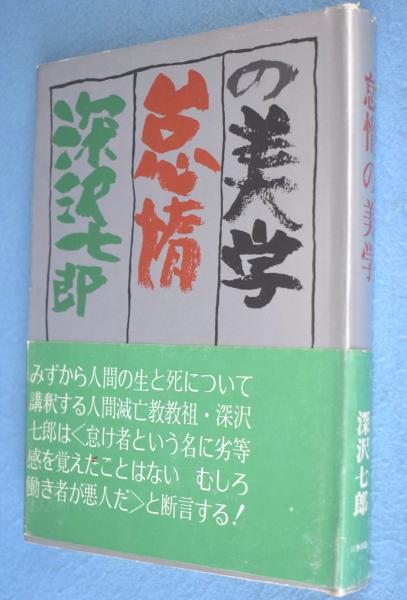 怠惰
の美学
深沢七郎
みずから人間の生と死について
講釈する人間滅亡教教祖・深沢
七郎は<怠け者という名に劣等
感を覚えたことはない むしろ
働き者が悪人だ>と断言する!
怠惰の美学
深沢七郎